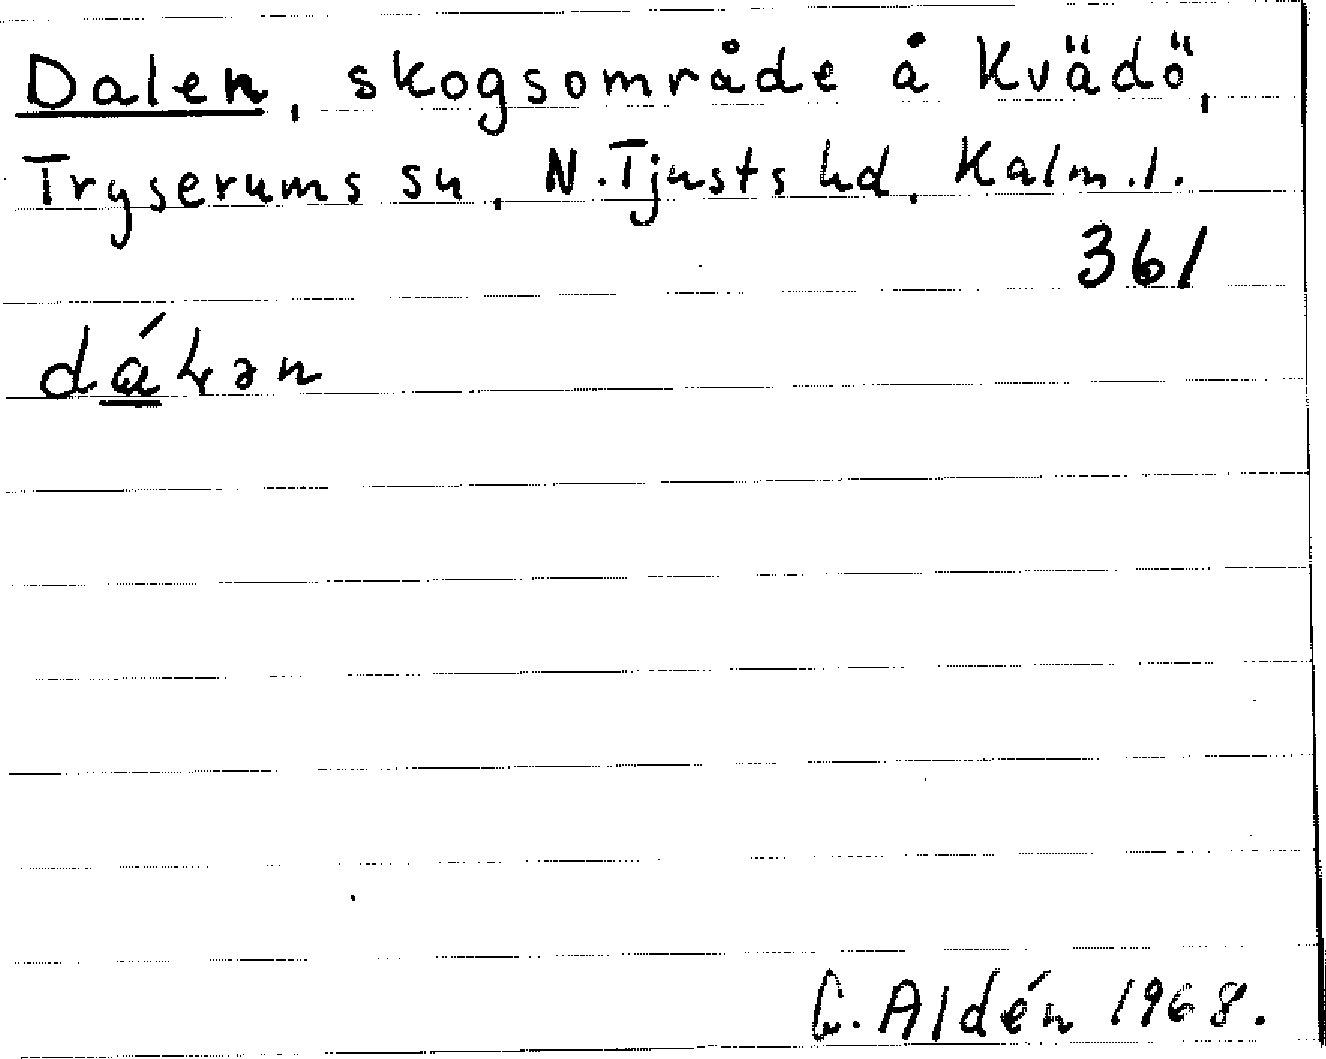 Dalen, skogsområde å Kvädö,
Tryserums sn, N. Tjusts hd, Kalm. l.
361
dáłən
G. Aldén 1968.